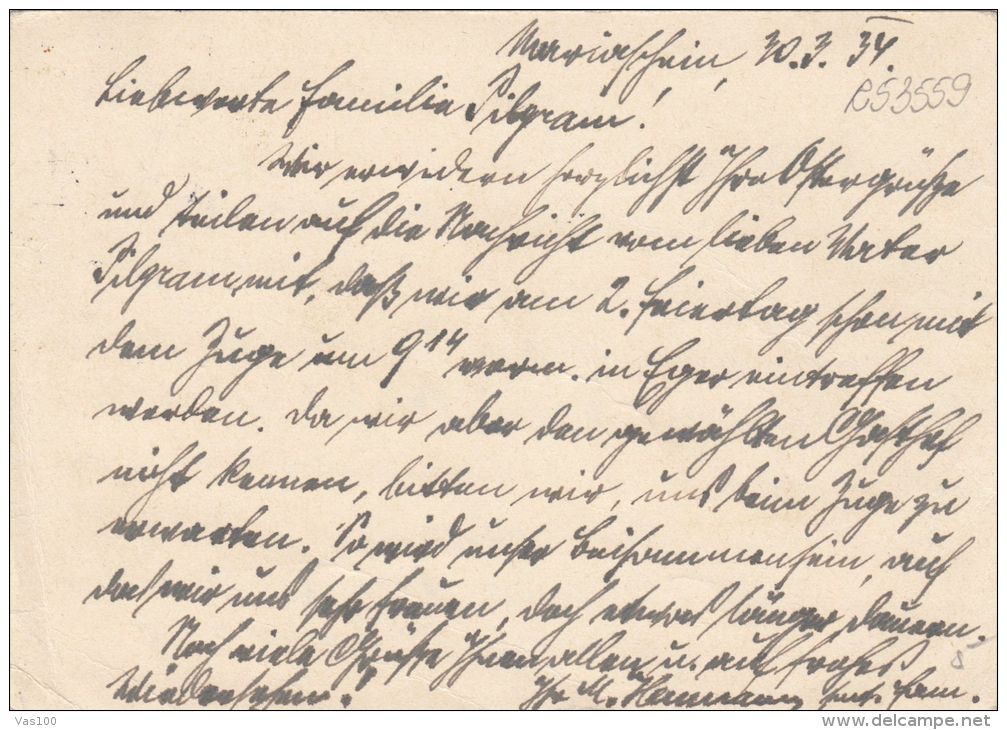 Mariaschein, 30.3.34.
e53559
Liebwerte Familie Pilgram!
Wir erwidern herzlichst Ihre Ostergrüße
und teilen auf die Nachricht vom lieben Vater
Pilgram mit, daß wir am 2. Feiertag schon mit
dem Zuge um 9¹⁴ vorm. in Eger eintreffen
werden. Da wir aber den gewählten Gasthof
nicht kennen, bitten wir, uns beim Zuge zu
erwarten. So wird unser Beisammensein, auf
das wir uns sehr freuen, doch etwas länger dauern.
Noch viele Grüße Ihnen allen u. auf frohes
Wiedersehen!
Ihr M. samt Fam.
Vas100
delcampe.net